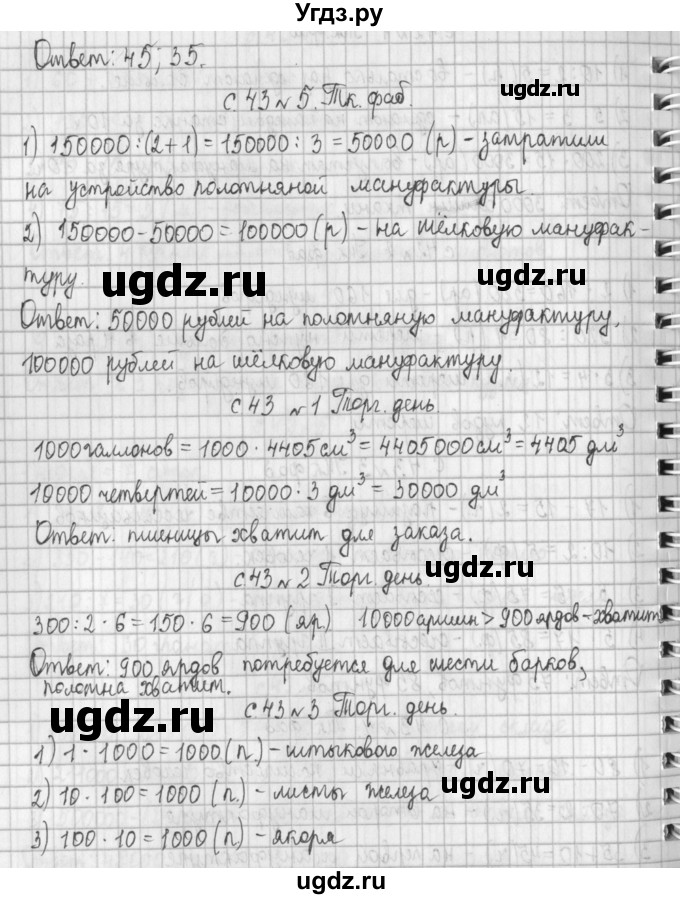 Угдз.ру
Ответ: 45; 35.
с 43 № 5. Тк. фаб.
1) 150000 : (2+1) = 150000 : 3 = 50000 (р) – затратили
на устройство полотняной мануфактуры.
2) 150000 - 50000 = 100000 (р) – на шёлковую мануфак-
туру.
ugdz.ru
ugdz.ru
Ответ: 50000 рублей на полотняную мануфактуру,
100000 рублей на шёлковую мануфактуру.
с 43 № 1 Торг. день
1000 галлонов = 1000 · 4405 см³ = 4405000 см³ = 4405 дм³
10000 четвертей = 10000 · 3 дм³ = 30000 дм³
Ответ. пшеницы хватит для заказа.
с 43 № 2 Торг. день
ugdz.ru
300 : 2 · 6 = 150 · 6 = 900 (яр) 10000 аршин > 900 ярдов – хватит
Ответ: 900 ярдов потребуется для шести барков,
полотна хватит.
ugdz.ru
с 43 № 3 Торг. день.
1) 1 · 1000 = 1000 (п) – штыкового железа
2) 10 · 100 = 1000 (п) – листы железа
ugdz.ru
3) 100 · 10 = 1000 (п) – якоря
ugdz.ru